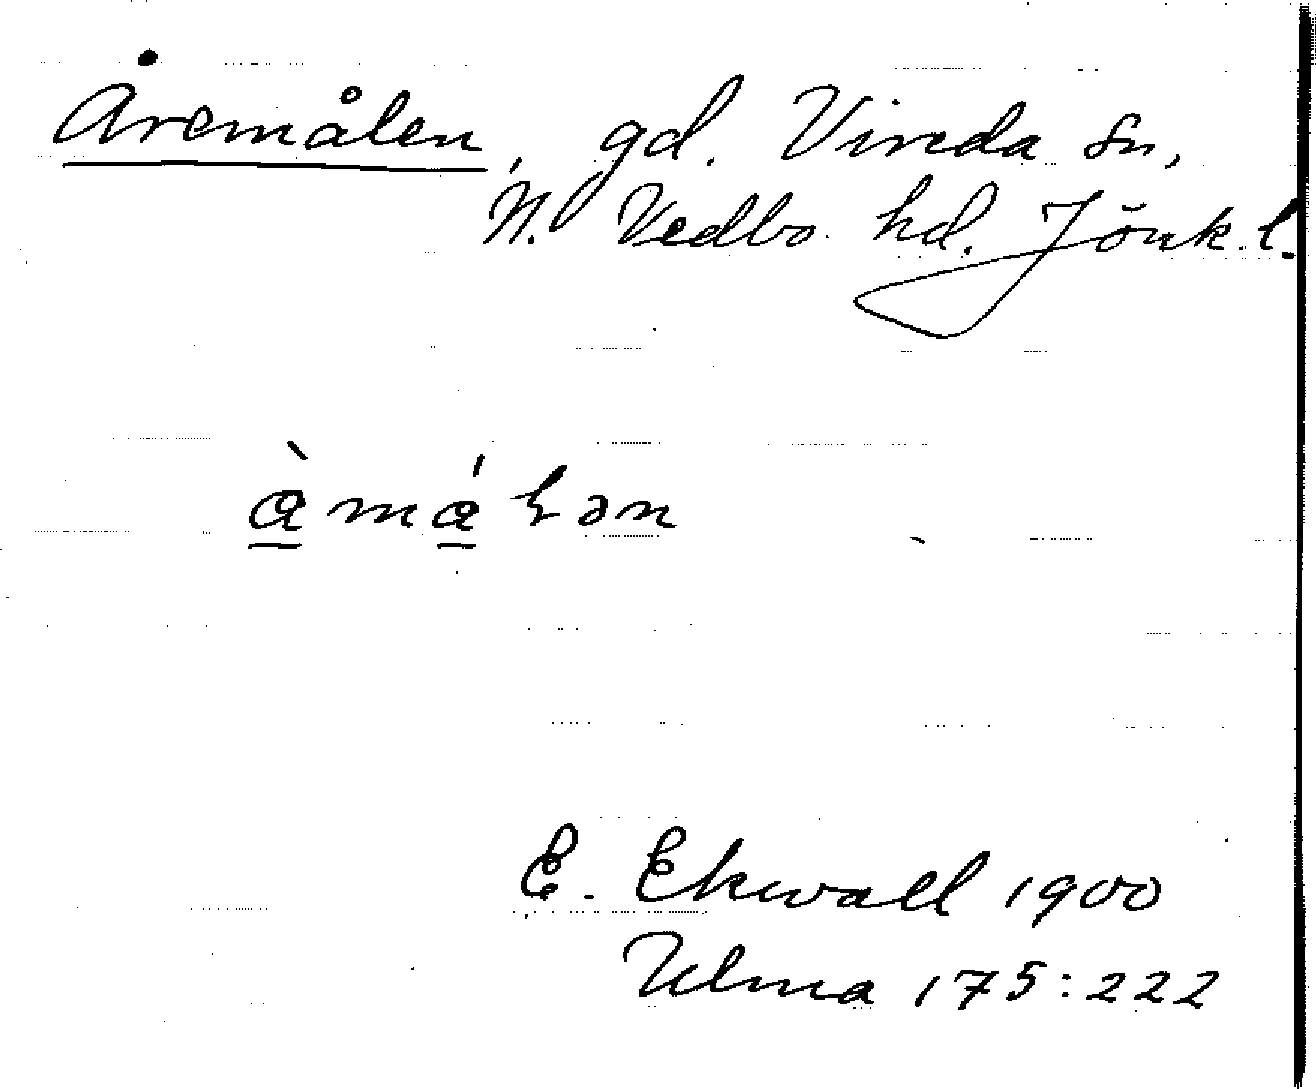 Åremålen, gd. Vireda sn,
N. Vedbo hd. Jönk. l.
à̠má̠ɫən
E. Ekwall 1900
Ulma 175:222